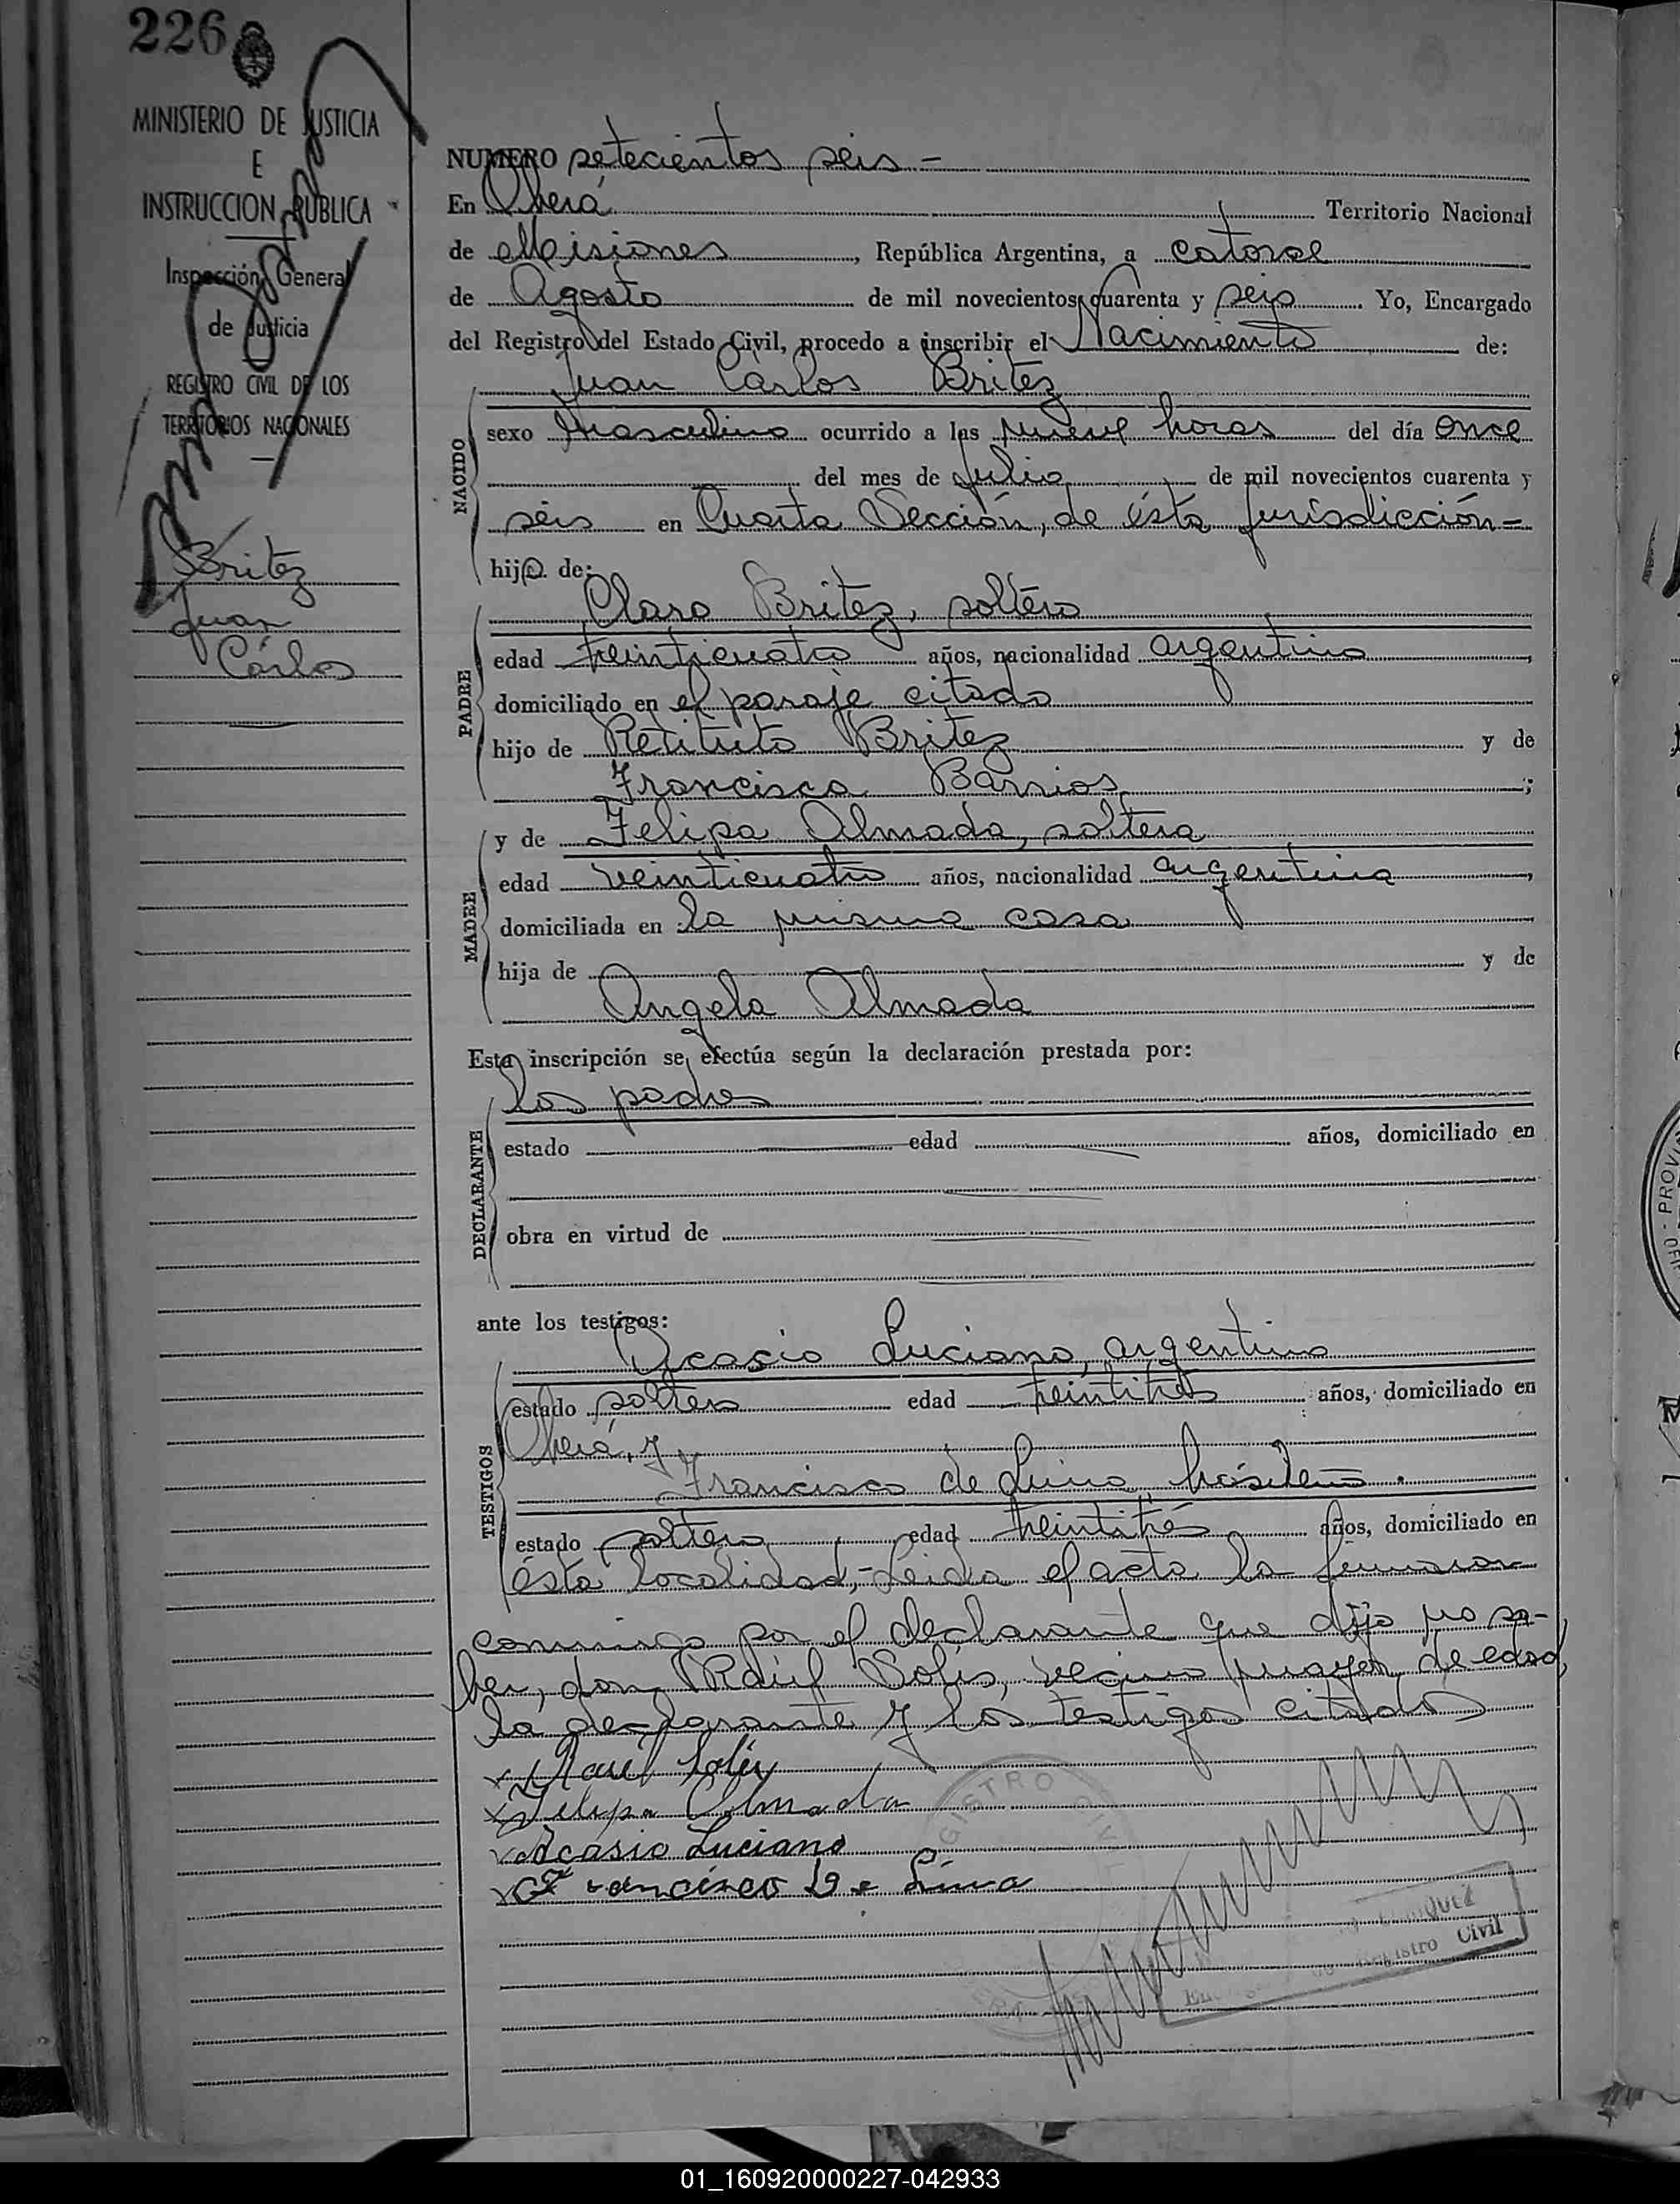 226
MINISTERIO DE JUSTICIA
E
INSTRUCCION PUBLICA
Inspección General
de Justicia
REGISTRO CIVIL DE LOS
TERRITORIOS NACIONALES
Britez
Juan
Cárlos
NUMERO setecientos seis -
En Oberá Territorio Nacional
de Misiones, República Argentina, a catorce
de Agosto de mil novecientos cuarenta y seis. Yo, Encargado
del Registro del Estado Civil, procedo a inscribir el Nacimiento de:
Juan Cárlos Britez
NACIDO
sexo Masculino ocurrido a las nueve horas del día once
del mes de Julio de mil novecientos cuarenta y
séis en Cuarta Sección, de ésta jurisdicción=
hijo de:
PADRE
Claro Britez, soltéro
edad treinticuatro años, nacionalidad argentino
domiciliado en el paraje citado
hijo de Retituto Britez y de
Francisca Barrios;
MADRE
y de Felipa Almada, soltera
edad veinticuatro años, nacionalidad argentina
domiciliada en la misma casa
hija de y de
Angela Almada
Esta inscripción se efectúa según la declaración prestada por:
DECLARANTE
los padres
estado edad años, domiciliado en
obra en virtud de
ante los testigos:
TESTIGOS
Acasio Luciano, argentino
estado soltero edad treintitres años, domiciliado en
Oberá, y
Francisco de Lima, brásileño.
estado soltero edad treintitrés años, domiciliado en
ésta localidad,-Leida el acta la firmaron
conmigo por el declarante que dijo no sa-
ber, don Raúl Solis, vecino mayor de edad,
la declarante y los testigos citados
Raul Solis
Felipa Almada
Acasio Luciano
Francisco De Lima
REGISTRO CIVIL
Registro Civil
01_160920000227-042933